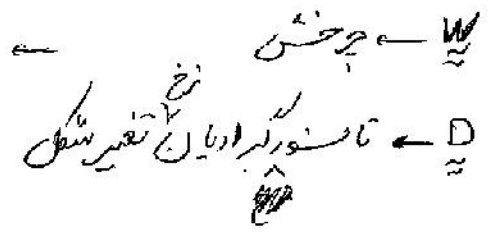 W ← چرخش ←
D ← تانسور گرادیان نرخ تغییر شکل